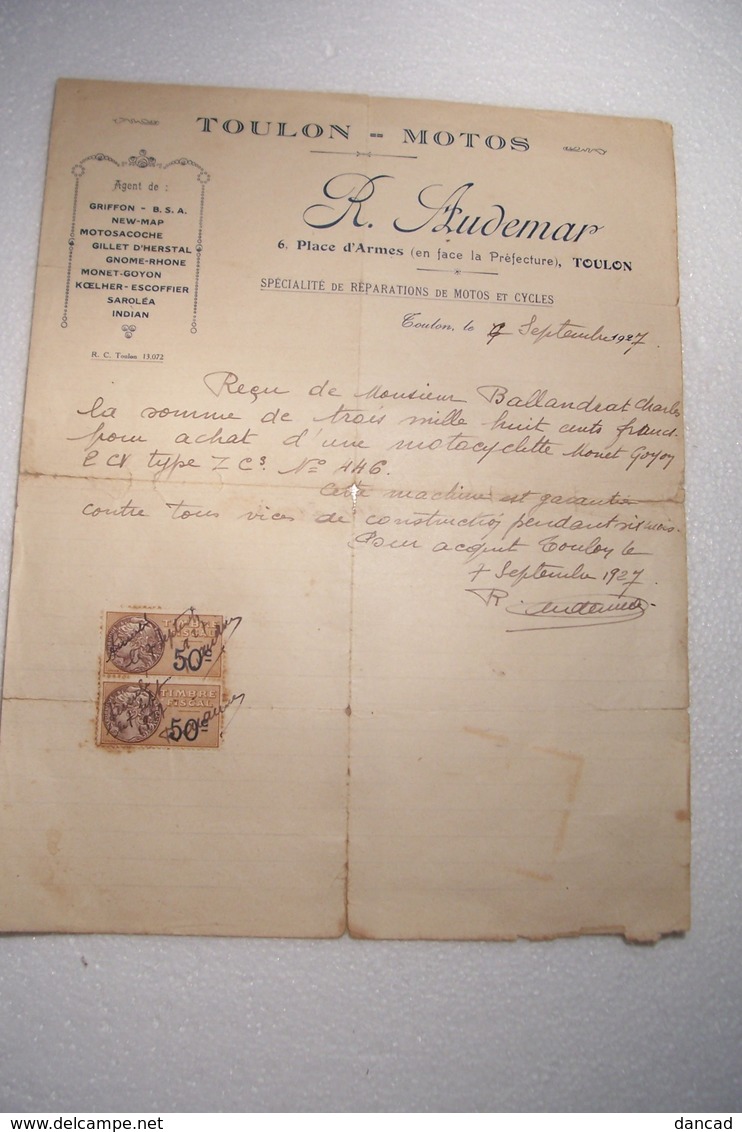 TOULON = MOTOS
Agent de :
GRIFFON - B. S. A.
NEW-MAP
MOTOSACOCHE
GILLET D'HERSTAL
GNOME-RHONE
MONET-GOYON
KŒLHER-ESCOFFIER
SAROLÉA
INDIAN
R. C. Toulon 13.072
R. Audemar
6. Place d'Armes (en face la Préfecture), TOULON
SPÉCIALITÉ DE RÉPARATIONS DE MOTOS ET CYCLES
Toulon, le 7 Septembre 1927
Reçu de Monsieur Ballandrat Charles
la somme de trois mille huit cents franc
pour achat d'une motocyclette Monet Goyon
2 CV type Z C^s. N° 446.
Cette machine est garantie
contre tous vices de construction pendant six mois.
Pour acquit Toulon le
7 Septembre 1927.
R. Audemar
TIMBRE
FISCAL
50c
TIMBRE
FISCAL
50c
dancad